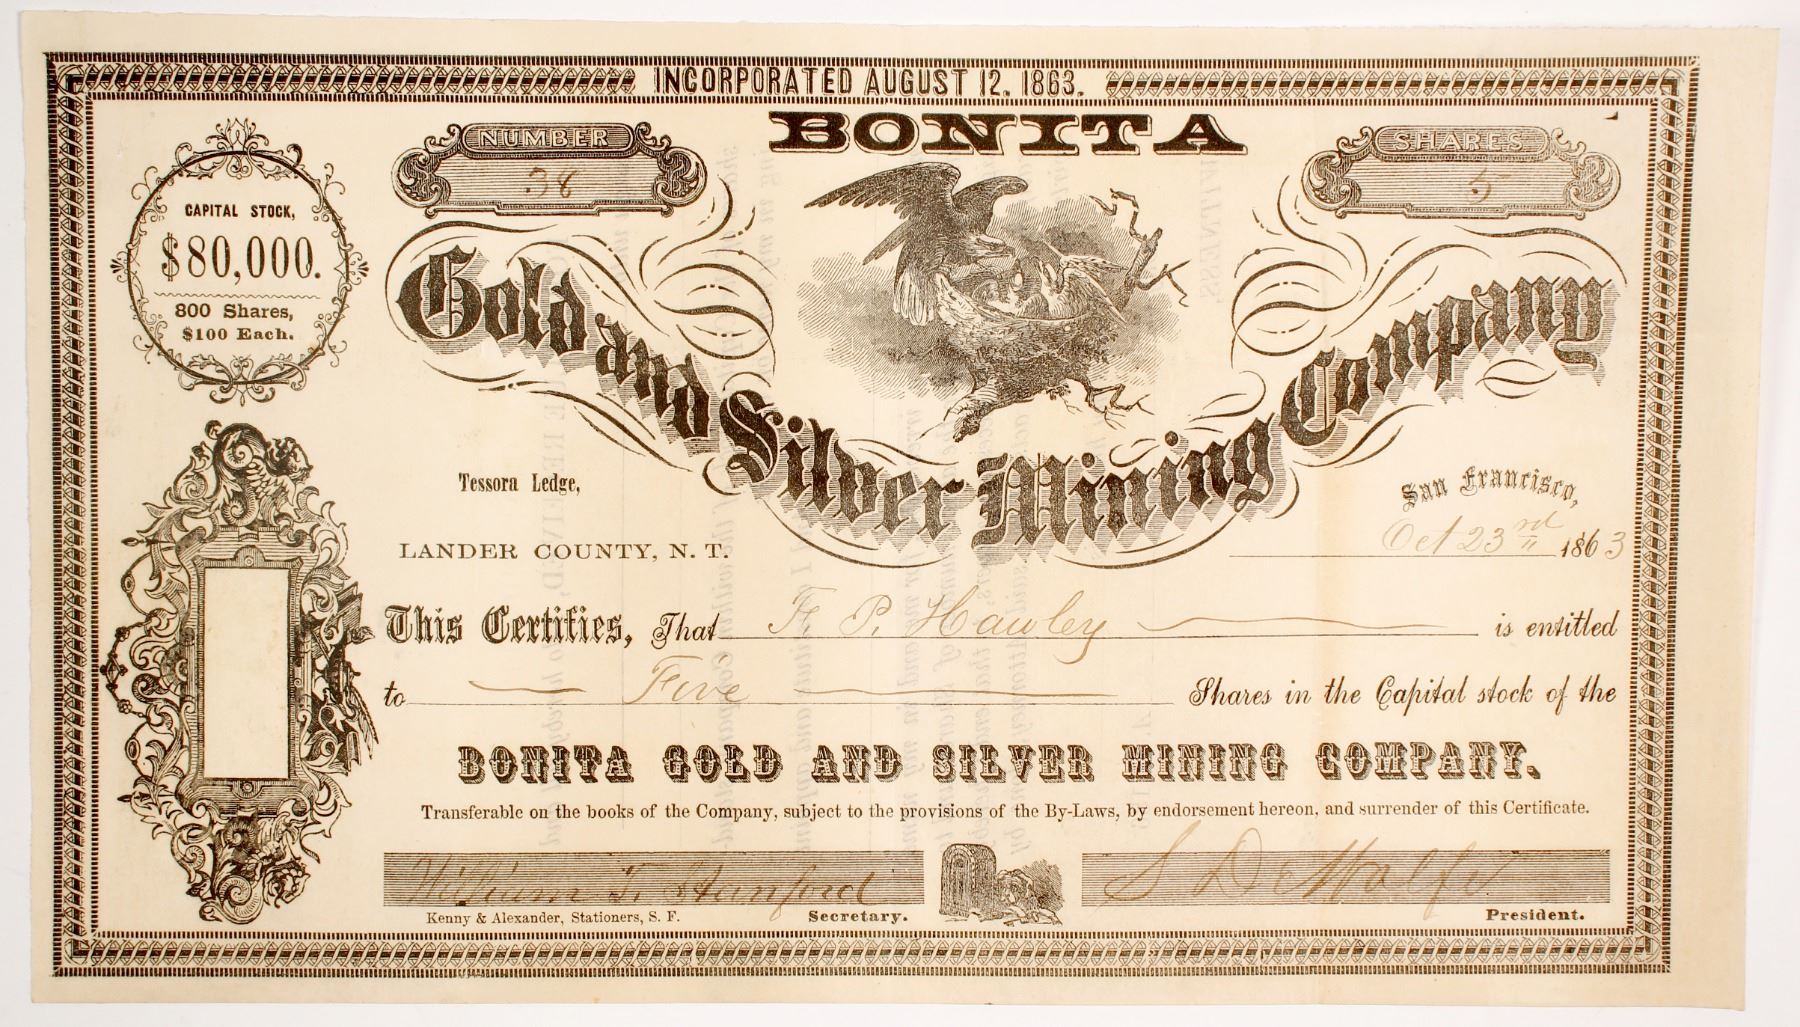 INCORPORATED AUGUST 12. 1863.
BONITA
NUMBER
38
SHARES
5
CAPITAL STOCK,
$80,000.
800 Shares,
$100 Each.
Gold and Silver Mining Company
Tessora Ledge,
LANDER COUNTY, N. T.
San Francisco,
Oct 23rd 1863
This Certifies, That F. P. Hawley is entitled
to Five Shares in the Capital stock of the
BONITA GOLD AND SILVER MINING COMPANY.
Transferable on the books of the Company, subject to the provisions of the By-Laws, by endorsement hereon, and surrender of this Certificate.
William T. Stanford
Kenny & Alexander, Stationers, S. F. Secretary.
President.